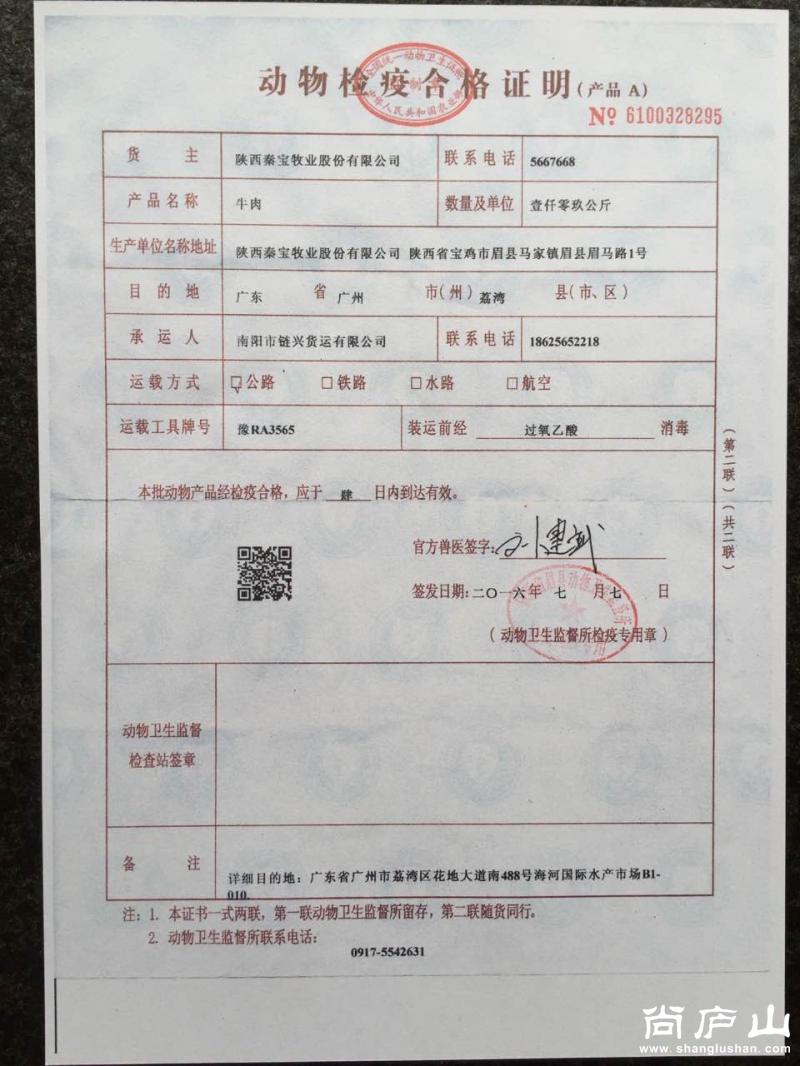 动物检疫合格证明(产品 A)
全国统一动物卫生证章
中华人民共和国农业部
№ 6100328295
货 主 陕西秦宝牧业股份有限公司 联系电话 5667668
产品名称 牛肉 数量及单位 壹仟零玖公斤
生产单位名称地址 陕西秦宝牧业股份有限公司 陕西省宝鸡市眉县马家镇眉县眉马路1号
目的地 广东 省 广州 市(州) 荔湾 县(市、区)
承运人 南阳市链兴货运有限公司 联系电话 18625652218
运载方式 ☑公路 □铁路 □水路 □航空
运载工具牌号 豫RA3565 装运前经 过氧乙酸 消毒
(第二联)(共二联)
本批动物产品经检疫合格，应于 肆 日内到达有效。
官方兽医签字:
签发日期:二〇一六年 七 月七 日
(动物卫生监督所检疫专用章)
动物卫生监督
检查站签章
备 注 详细目的地：广东省广州市荔湾区花地大道南488号海河国际水产市场B1-
010.
注：1. 本证书一式两联，第一联动物卫生监督所留存，第二联随货同行。
2. 动物卫生监督所联系电话:
0917-5542631
尚庐山
www.shanglushan.com